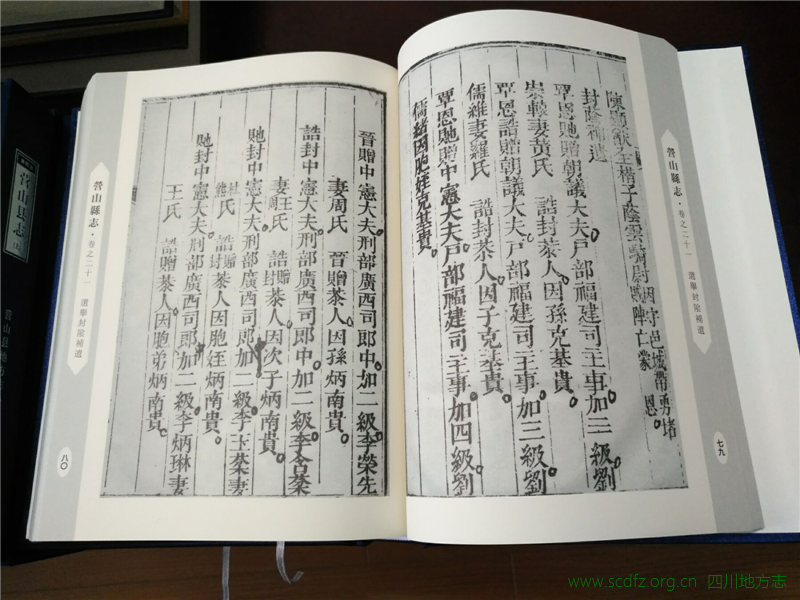 營山縣志·卷之二十一 選舉封蔭補遺
七九
子蔭雲騎尉因守邑城帶勇堵
陣亡蒙 恩
封蔭補遺
覃恩貤贈朝議大夫戶部福建司主事加三級劉
崇轅妻黃氏 誥封恭人因孫克基貴
覃恩誥贈朝議大夫戶部福建司主事加三級劉
儒維妻羅氏 誥封恭人因子克基貴
覃恩貤贈中憲大夫戶部福建司主事加四級劉
儒緒因胞姪克基貴
晉贈中憲大夫刑部廣西司郎中加二級李榮先
妻周氏 晉贈恭人因孫炳南貴
誥封中憲大夫刑部廣西司郎中加二級李含蘂
妻王氏 誥贈封恭人因次子炳南貴
貤封中憲大夫刑部廣西司郎加二級李玉蘂妻
杜氏熊氏 誥贈封恭人因胞姪炳南貴
貤封中憲大夫刑部廣西司郎加二級李炳琳妻
王氏 誥贈恭人因胞弟炳南貴
營山縣志·卷之二十一 選舉封蔭補遺
八〇
营山县志
营山县地方
www.scdfz.org.cn 四川地方志